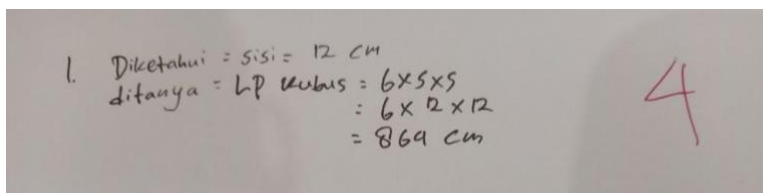 1. Diketahui = sisi = 12 cm
ditanya = LP kubus = 6×s×s
= 6 × 12 × 12
= 864 cm
4